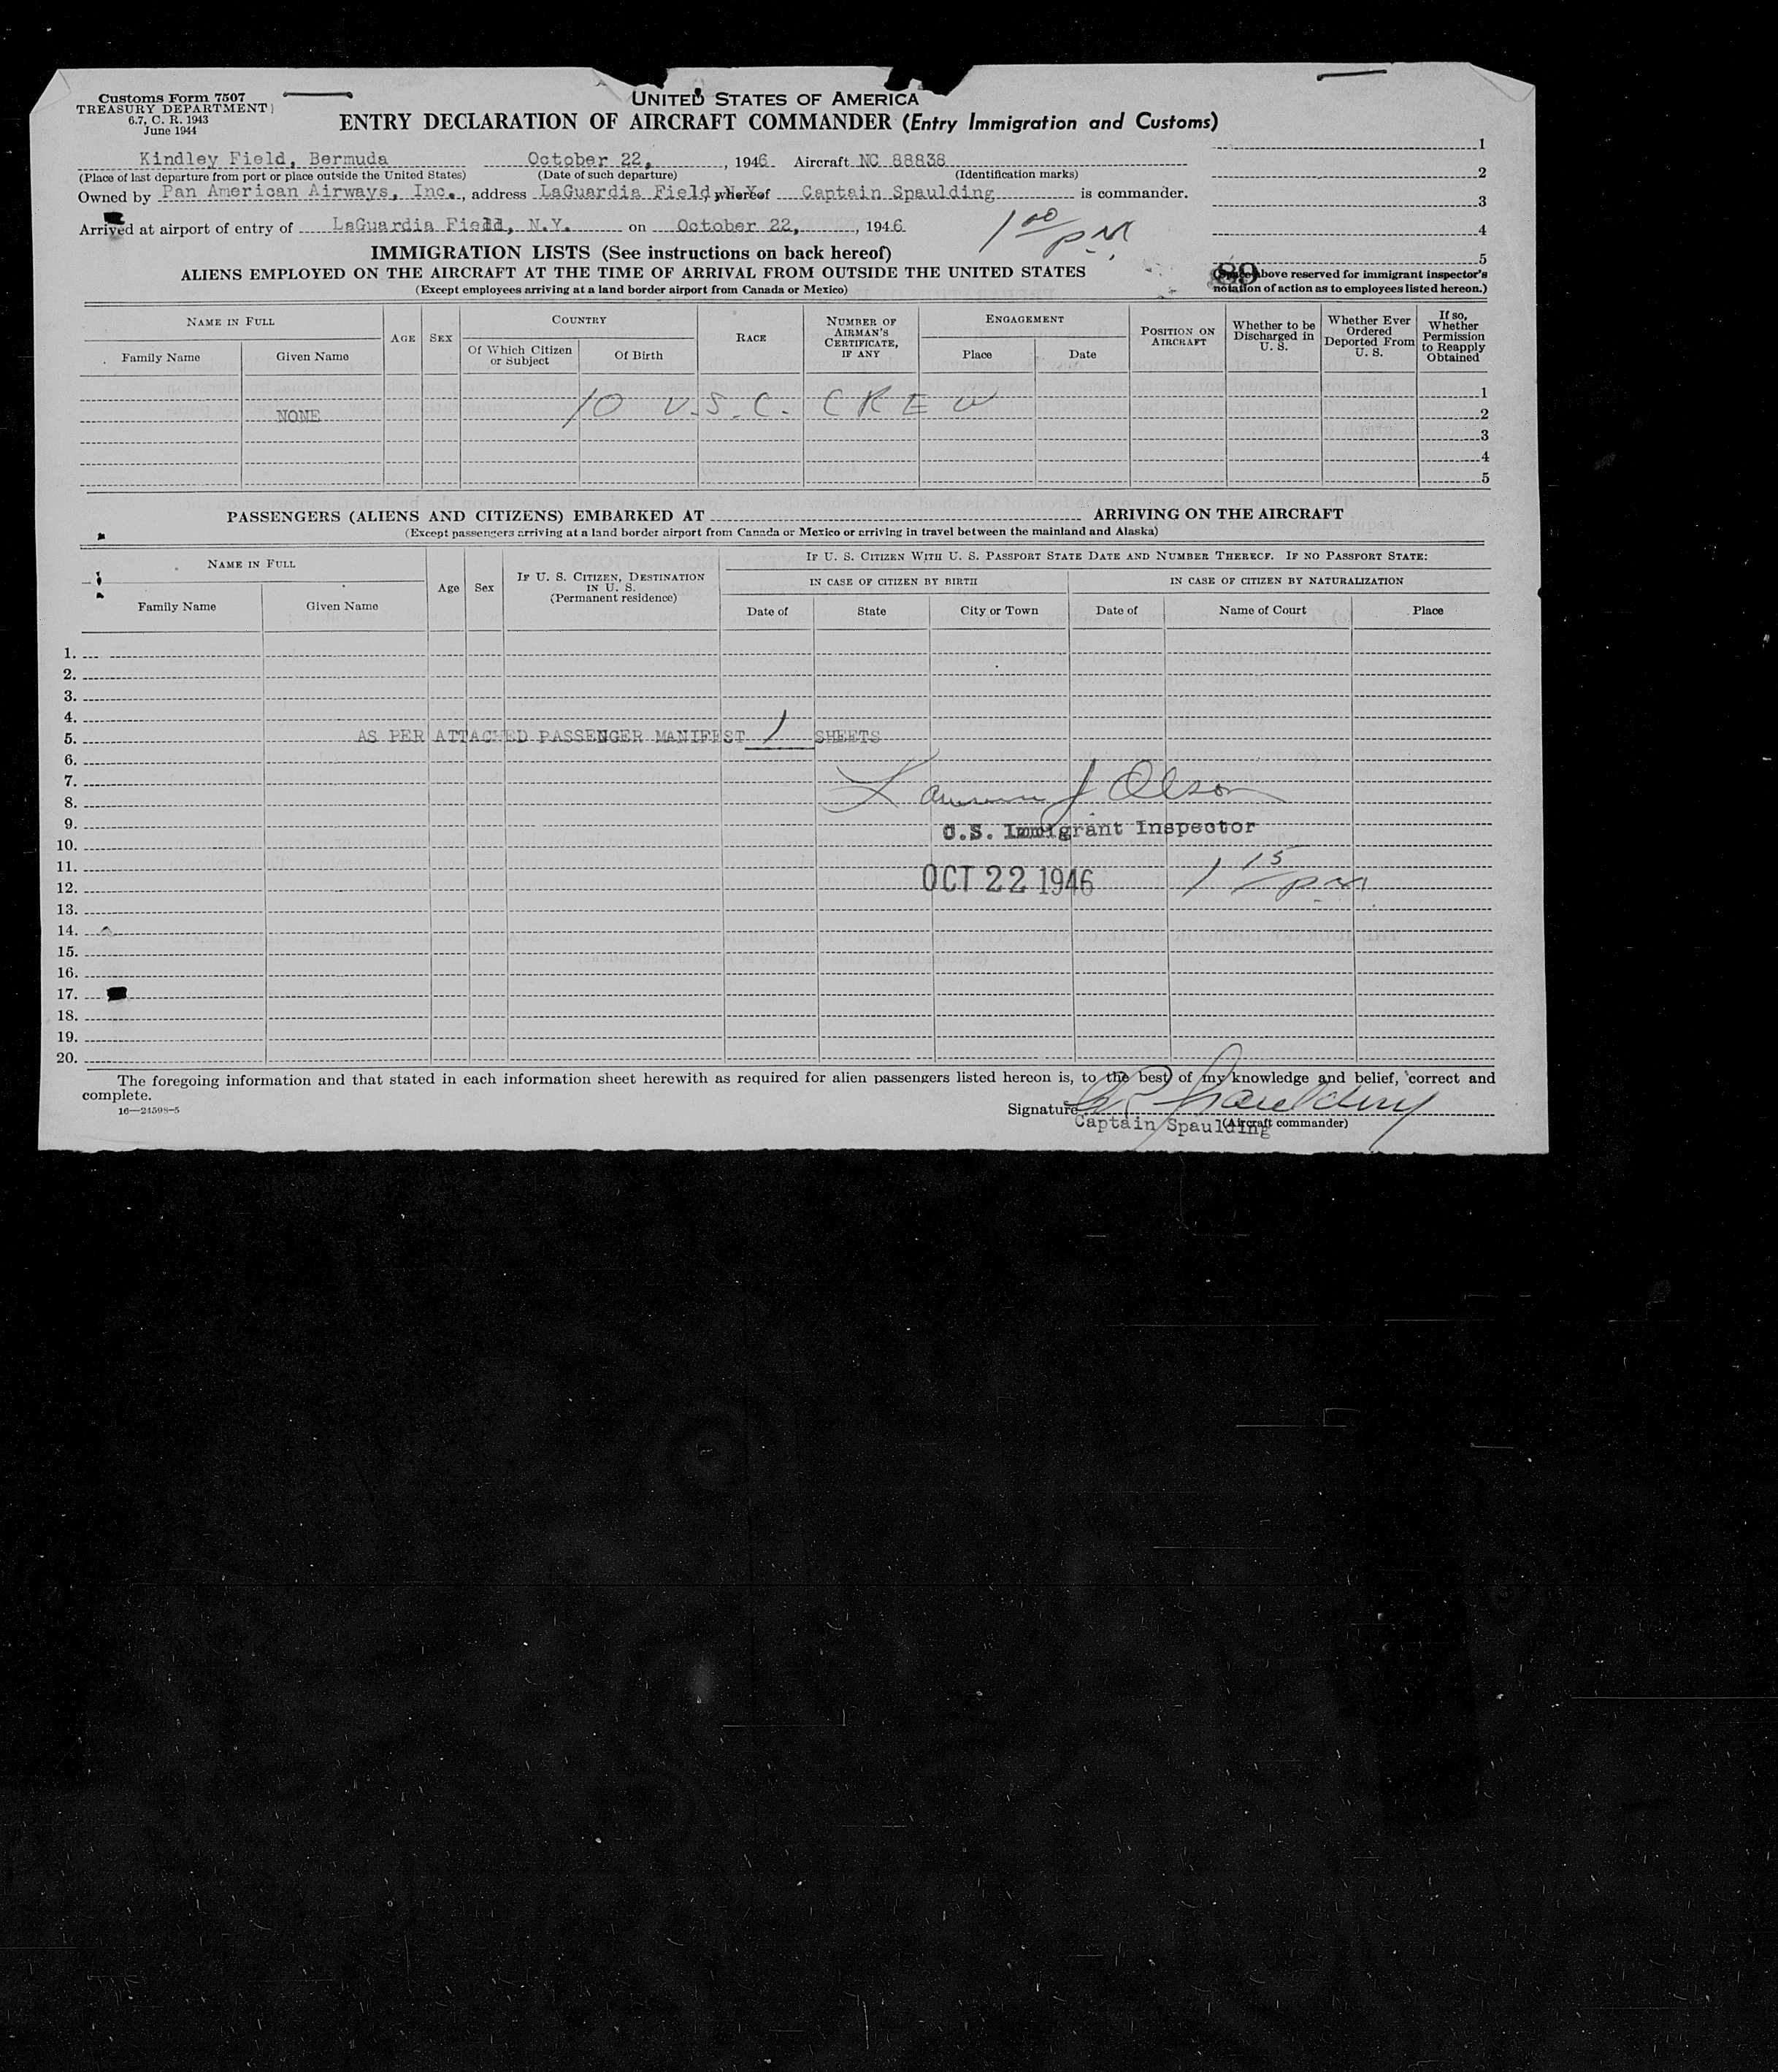 Customs Form 7507
TREASURY DEPARTMENT
6.7, C. R. 1943
June 1944
UNITED STATES OF AMERICA
ENTRY DECLARATION OF AIRCRAFT COMMANDER (Entry Immigration and Customs)
Kindley Field, Bermuda October 22, , 1946 Aircraft NC 88838
(Place of last departure from port or place outside the United States) (Date of such departure) (Identification marks)
Owned by Pan American Airways, Inc., address LaGuardia Field, N.Y. whereof Captain Spaulding is commander.
Arrived at airport of entry of LaGuardia Field, N.Y. on October 22, , 1946
1 00 PM
1
2
3
4
5
IMMIGRATION LISTS (See instructions on back hereof)
ALIENS EMPLOYED ON THE AIRCRAFT AT THE TIME OF ARRIVAL FROM OUTSIDE THE UNITED STATES
(Except employees arriving at a land border airport from Canada or Mexico)
89
(Space above reserved for immigrant inspector's
notation of action as to employees listed hereon.)
NAME IN FULL
Family Name Given Name
AGE SEX
COUNTRY
Of Which Citizen or Subject Of Birth
RACE
NUMBER OF AIRMAN'S CERTIFICATE, IF ANY
ENGAGEMENT
Place Date
POSITION ON AIRCRAFT
Whether to be Discharged in U. S.
Whether Ever Ordered Deported From U. S.
If so, Whether Permission to Reapply Obtained
1
NONE 10 U.S.C. CREW 2
3
4
5
PASSENGERS (ALIENS AND CITIZENS) EMBARKED AT ARRIVING ON THE AIRCRAFT
(Except passengers arriving at a land border airport from Canada or Mexico or arriving in travel between the mainland and Alaska)
NAME IN FULL
Family Name Given Name
Age Sex
IF U. S. CITIZEN, DESTINATION IN U. S. (Permanent residence)
IF U. S. CITIZEN WITH U. S. PASSPORT STATE DATE AND NUMBER THEREOF. IF NO PASSPORT STATE:
IN CASE OF CITIZEN BY BIRTH IN CASE OF CITIZEN BY NATURALIZATION
Date of State City or Town Date of Name of Court Place
1.
2.
3.
4.
5. AS PER ATTACHED PASSENGER MANIFEST 1 SHEETS
6.
7.
8. J Olson
9. U.S. Immigrant Inspector
10.
11.
12. OCT 22 1946 1 15 PM
13.
14.
15.
16.
17.
18.
19.
20.
The foregoing information and that stated in each information sheet herewith as required for alien passengers listed hereon is, to the best of my knowledge and belief, correct and
complete.
16—24598-5
Signature Spaulding
Captain Spaulding (Aircraft commander)